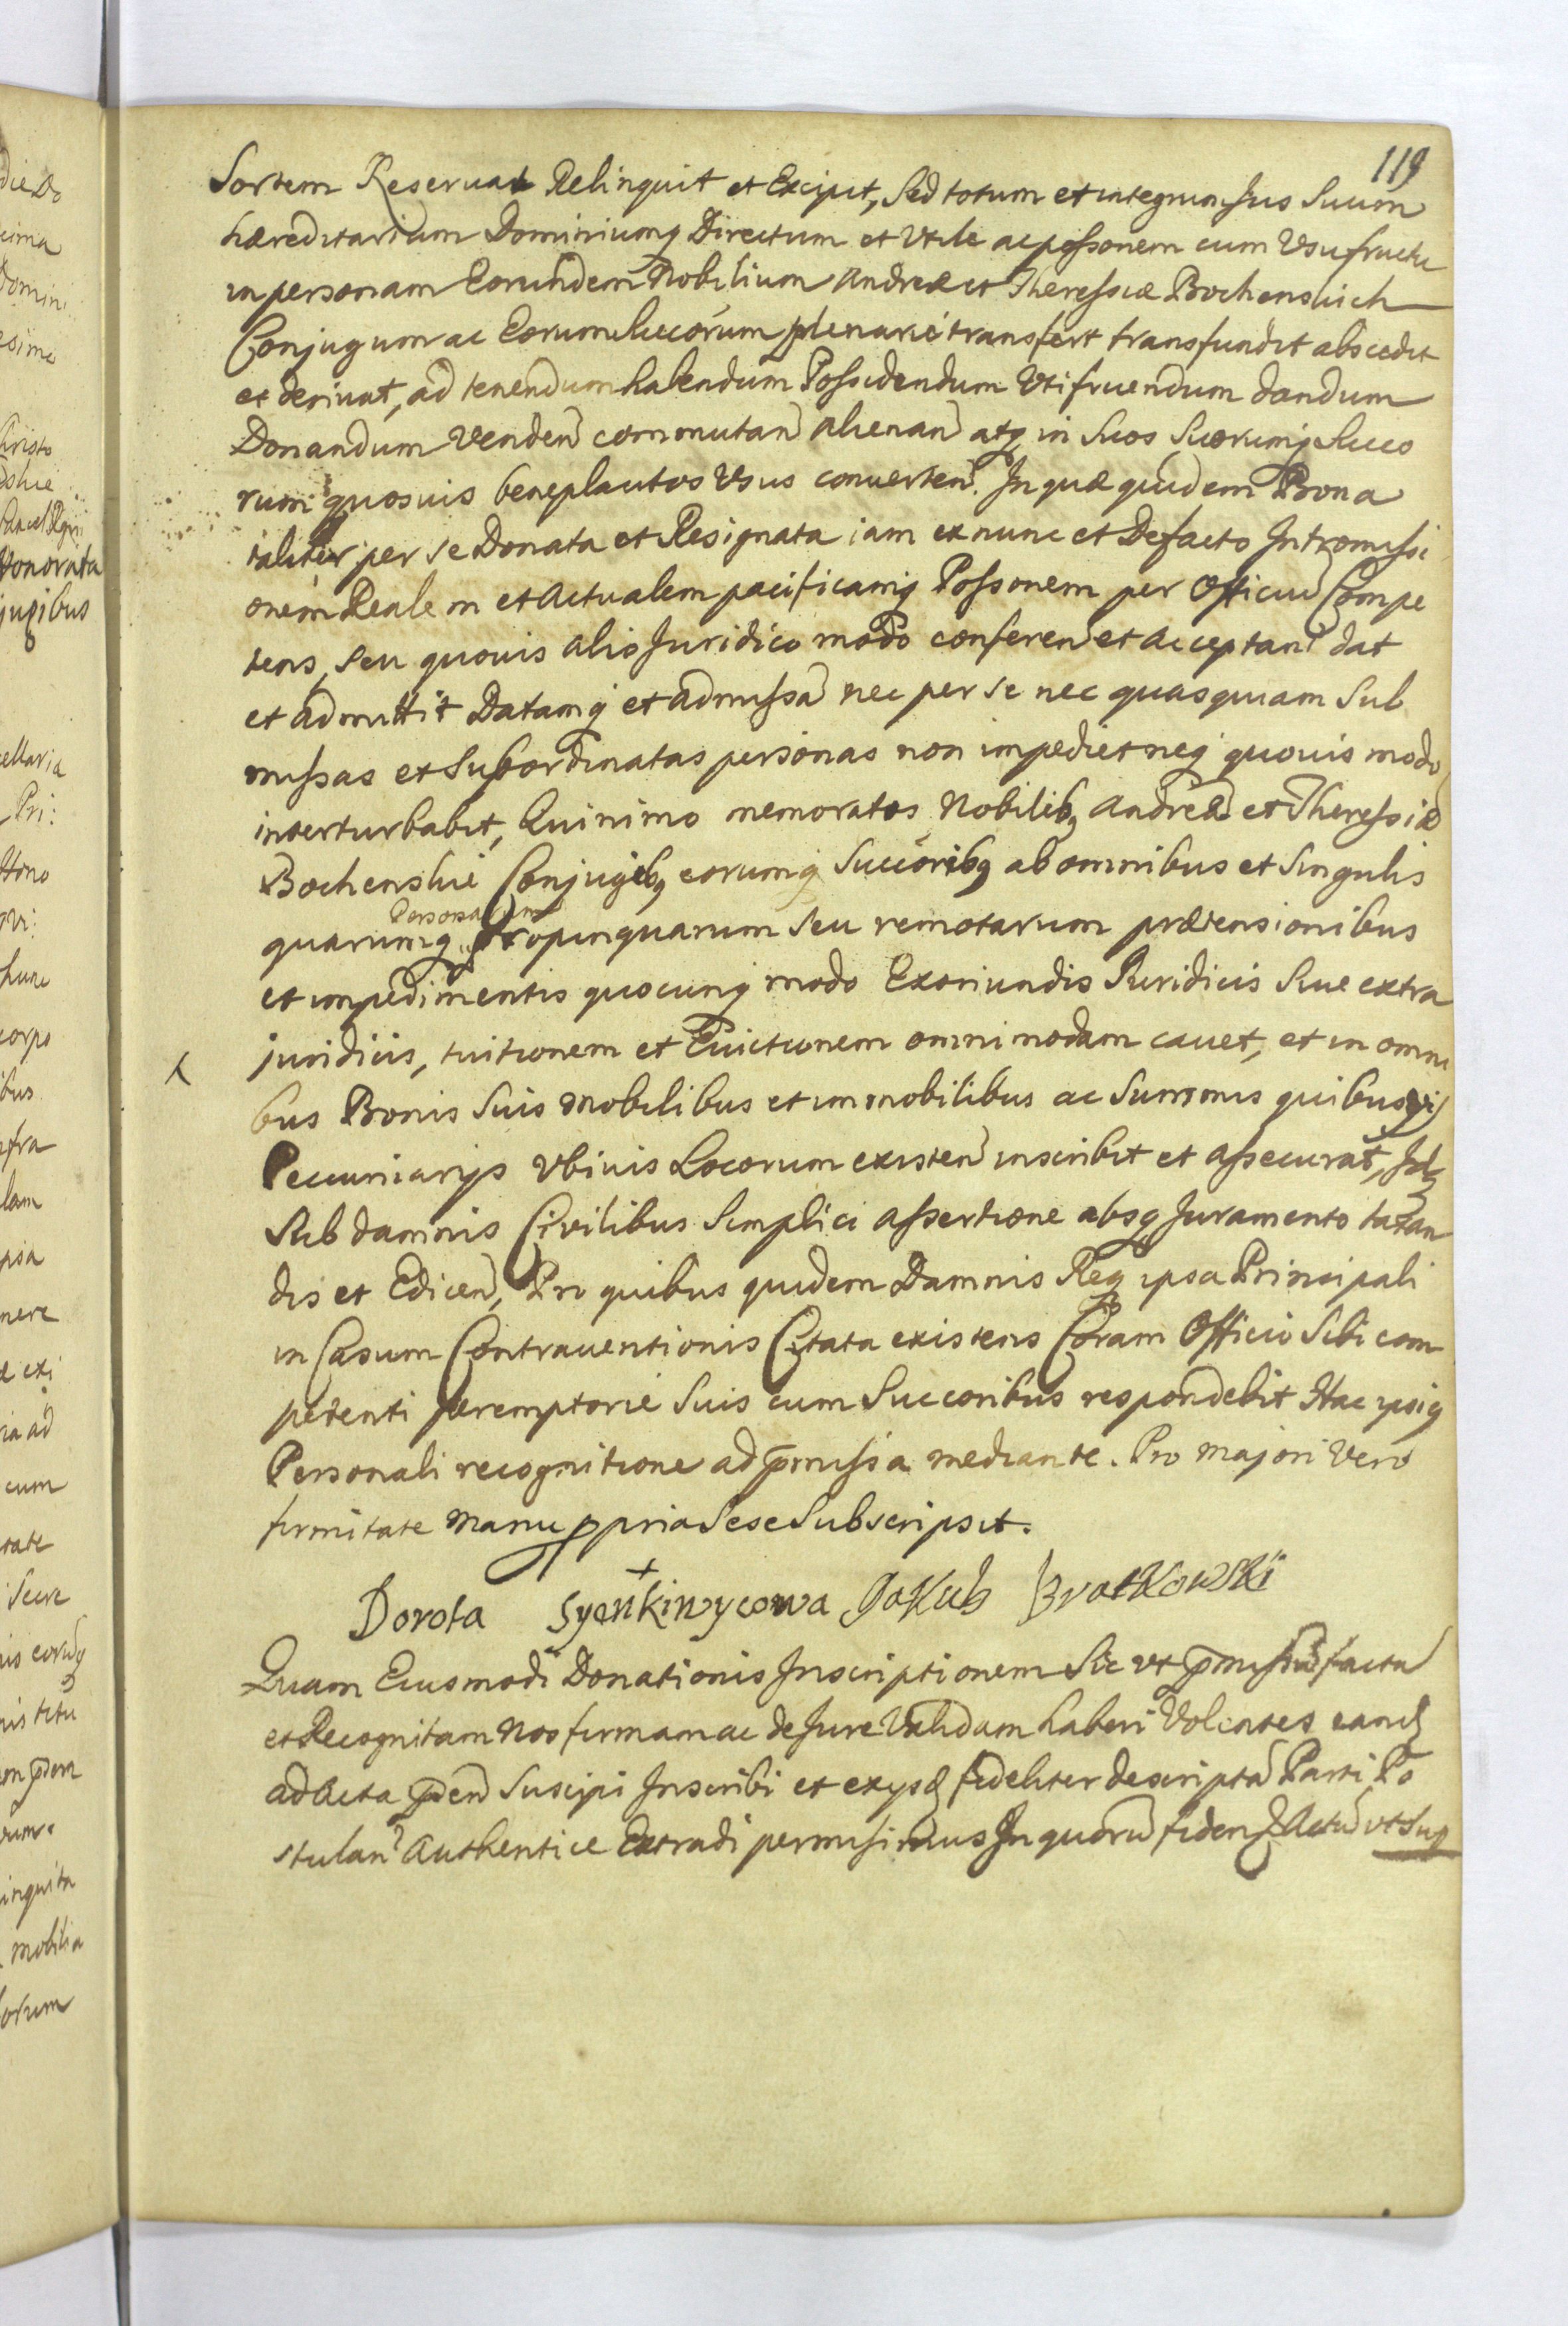 119
Sortem Reseruat Relinquit et Excipit, Sed totum et integrum Jus Suum
hæreditarium Dominiumq Directum et Vtile ac possonem cum Vsufructu
in personam Eorundem Nobilium Andreæ et Theressiæ Bochenskich
Conjugum ac Eorum Succorum plenarie transfert transfundit abscedit
et deriuat, ad tenendum habendum Possidendum Vtifruendum dandum
Donandum Venden commutan alienan atq in Suos Suorumq Succo
rum quosuis beneplacitos Vsus conuerten. In quæ quidem Bona
taliter per se Donata et Resignata iam ex nunc et Defacto Intromissi
onem Realem et Actualem pacificamq Possonem per Officiu Compe
tens, seu quouis alio Juridico modo conferen et acceptan dat
et admittit Datamq et admissa nec per se nec quasquam Sub
missas et Subordinatas personas non impediet neq quouis modo
inter turbabit, Quinimo memoratos Nobilibq Andreæ et Theressiæ
Bochenskie Conjugibq eorumq Succoribq ab omnibus et Singulis
Personarum
quarumq propinquarum seu remotarum prætensionibus
et impedimentis quocunq modo Exoriundis Juridicis Siue extra
juridicis, tuitionem et Euictionem omnimodam cauet, et in omni
bus Bonis Suis Mobilibus et immobilibus ac Summis quibusuis
Pecuniarijs Vbiuis Locorum existen inscribit et assecurat, Idq
Sub damnis Civilibus Simplici assertione absq Juramento taxan
dis et Edicen, Pro quibus quidem Damnis Req ipsa Principali
in Casum Contrauentionis Citata existens Coram Officio Sibi com
petenti peremptorie Suis cum Succoribus respondebit Hac ipsiq
Personali recognitione ad pmissa mediante. Pro majori Vero
firmitate manu ppria Sese Subscripsit.
Dorota + Syenkiwycowa Jakub Bratkowski
Quam Eiusmodi Donationis Inscriptionem Sic vt pmissu facta
et Recognitam Nos firmam ac de Jure Validam haberi Volentes eand
ad Acta pden Suscipi Inscribi et ex ijsd fideliter descripta Parti Po
stulan Authentice Extradi permisimus In quoru fidem Actu vt Sup